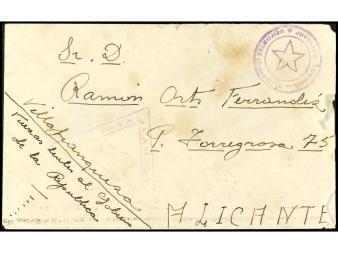 Sr. D.
Ramón Orts Ferrandis
P. Torregrosa 75
ALICANTE
Villafranqueza
Fuerzas leales al Gobierno
de la República